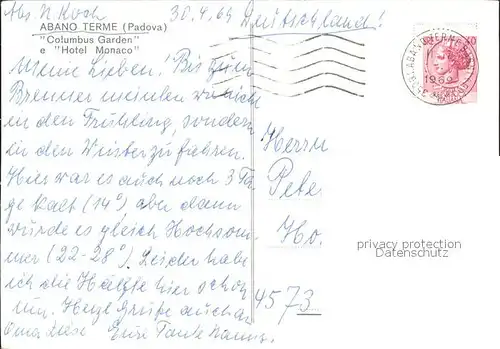 Abs. N. Koch 30.4.69 Deutschland!
ABANO TERME (Padova)
"Columbus Garden"
e "Hotel Monaco"
Meine Lieben! Bis zum
Brenner meinten wir nicht
in den Frühling, sondern
in den Winter zu fahren.
Hier war es auch noch 3 Ta-
ge kalt (14°), aber dann
wurde es gleich Hochsom-
mer (22-28°). Leider habe
ich die Hälfte hier schon
um. Herzl. Grüße auch an
Oma Liese Eure Tante Nanny.
Herrn
Pete
Ho.
4573
ABANO TERME
1969
privacy protection
Datenschutz